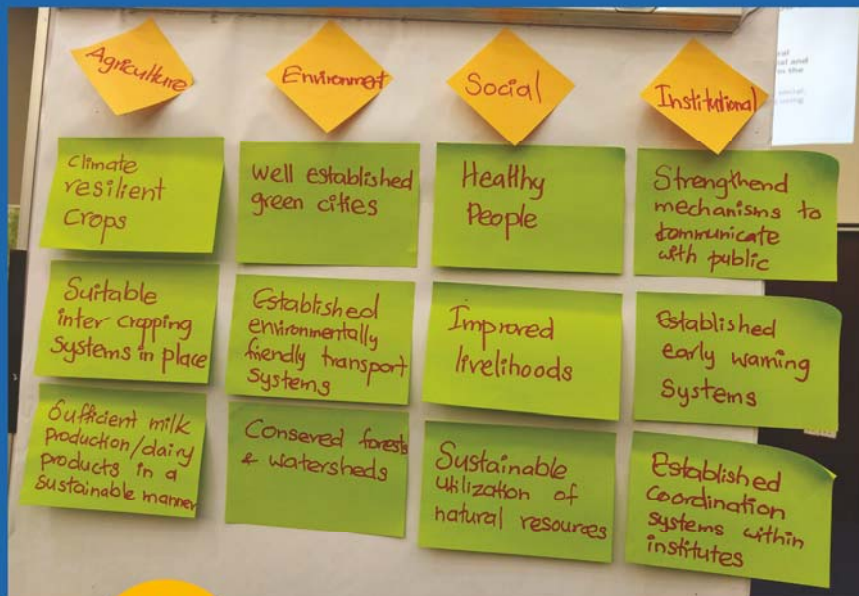 Agriculture
Climate
resilient
Crops
Suitable
inter cropping
Systems in place
Sufficient milk
production/dairy
products in a
sustainable manner
Environment
Well established
green cities
Established
environmentally
friendly transport
Systems
Conserved forests
& watersheds
Social
Healthy
People
Improved
livelihoods
Sustainable
utilization of
natural resources
Institutional
Strengthend
mechanisms to
communicate
with public
Established
early warning
Systems
Established
Coordination
systems within
institutes